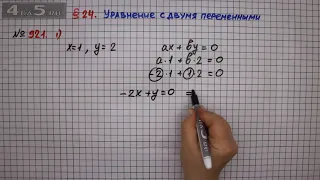 4 из 5
§ 24. Уравнение с двумя переменными
№ 921. 1)
x=1, y=2
ax + by = 0
a·1 + b·2 = 0
-2·1 + 1·2 = 0
-2x + y = 0 =